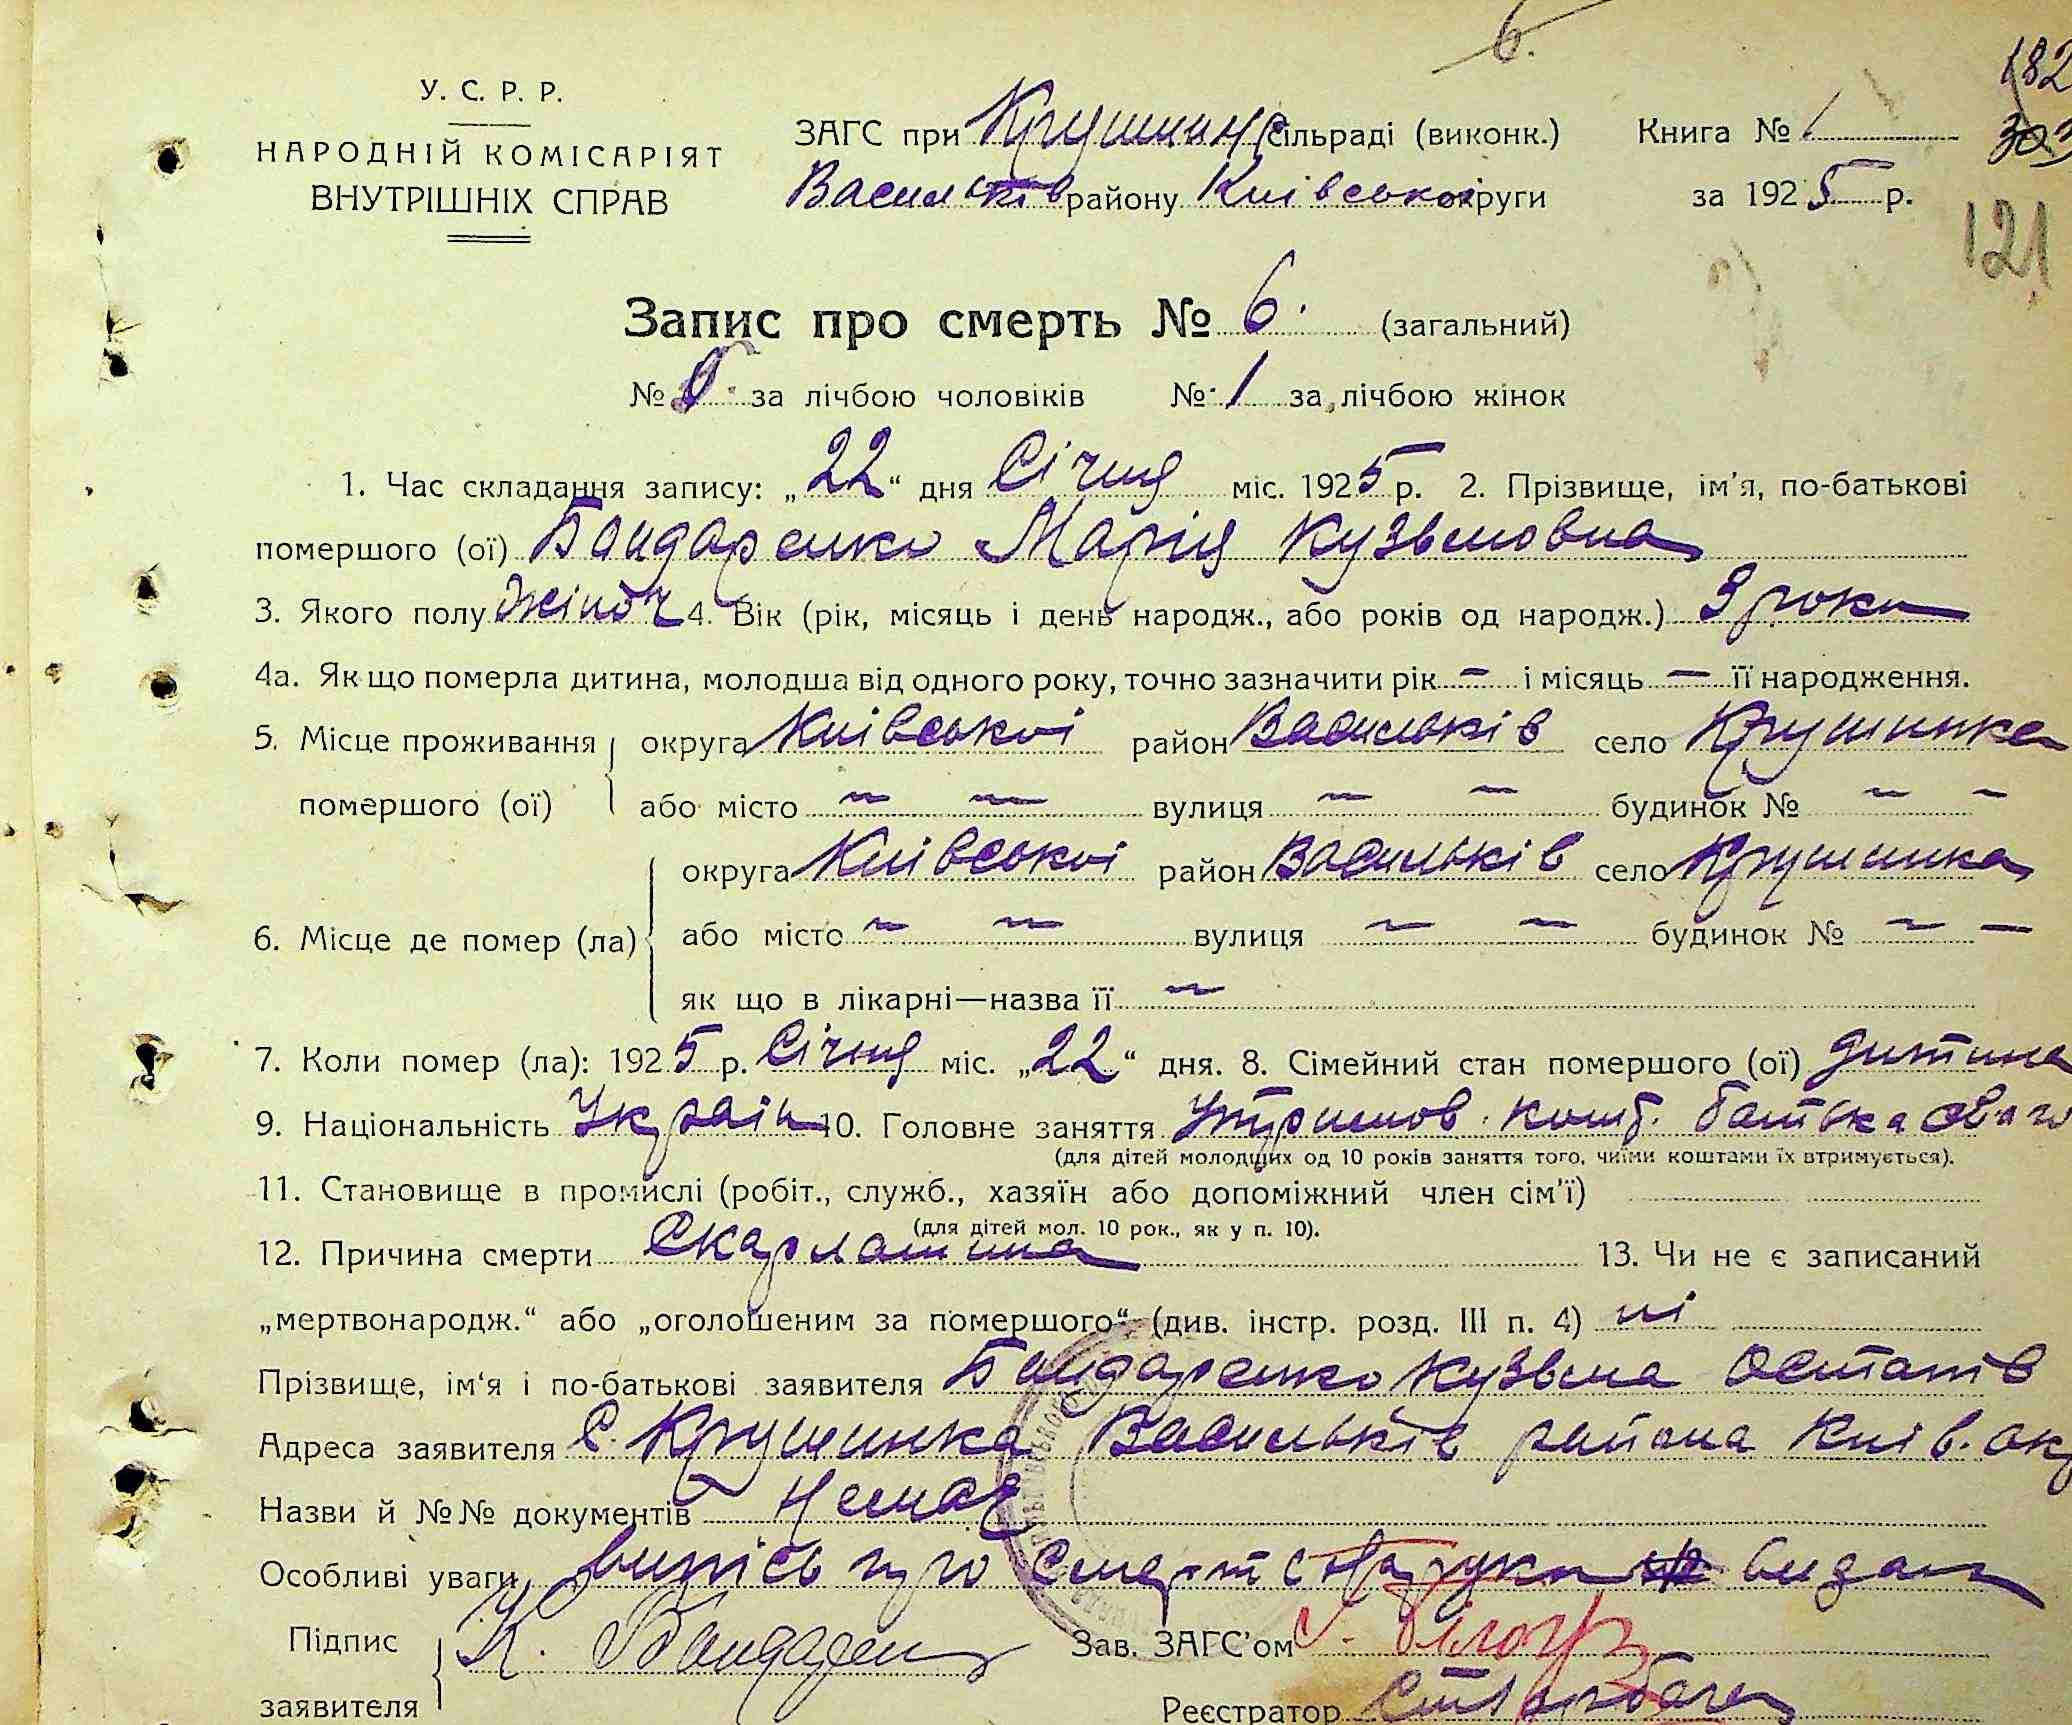 6.
182
У. С. Р. Р.
НАРОДНІЙ КОМІСАРІЯТ
ВНУТРІШНІХ СПРАВ
ЗАГС при Крушин сільраді (виконк.) Книга № 1
Васильків району Київської округи за 1925 р.
121
Запис про смерть № 6. (загальний)
№ за лічбою чоловіків № 1 за лічбою жінок
1. Час складання запису: „22“ дня Січня міс. 1925 р. 2. Прізвище, ім'я, по-батькові
помершого (ої) Бондаренко Марія Кузьмовна
3. Якого полу жіноч 4. Вік (рік, місяць і день народж., або років од народж.) 3 роки
4а. Як що померла дитина, молодша від одного року, точно зазначити рік — і місяць — її народження.
5. Місце проживання округа Київської район Васильків село Крушинка
помершого (ої) або місто — — вулиця — — будинок № — —
округа Київської район Васильків село Крушинка
6. Місце де помер (ла) або місто — — вулиця — — будинок № — —
як що в лікарні—назва її —
7. Коли помер (ла): 1925 р. Січня міс. „22“ дня. 8. Сімейний стан помершого (ої) дитина
9. Національність Україн 10. Головне заняття Утримов. кошт. батька свого
(для дітей молодших од 10 років заняття того, чиїми коштами їх втримується).
11. Становище в промислі (робіт., служб., хазяїн або допоміжний член сім'ї)
(для дітей мол. 10 рок., як у п. 10).
12. Причина смерти Скарлатина 13. Чи не є записаний
„мертвонародж.“ або „оголошеним за помершого“ (див. інстр. розд. III п. 4) ні
Прізвище, ім'я і по-батькові заявителя Бондаренко Кузьма Остапів
Адреса заявителя С. Крушинка Васильків района Київ. ок
Назви й №№ документів Немає
Особливі уваги випісь про смерть на руки видан
Підпис К. Бондарен Зав. ЗАГС'ом
заявителя Реєстратор